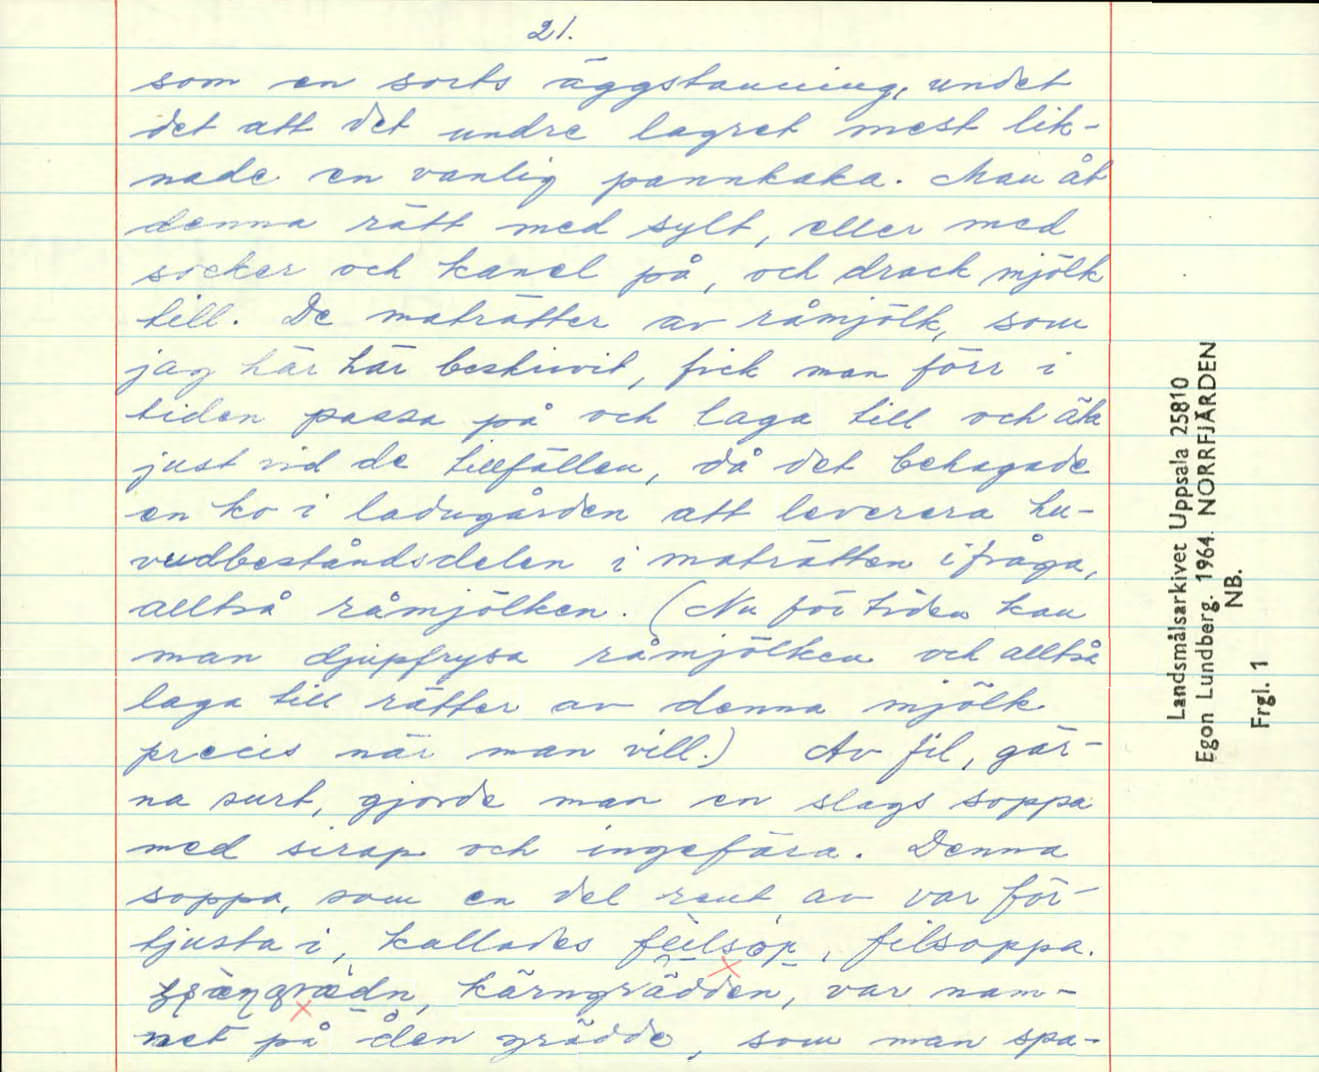 21.
som en sorts äggstanning, undet
det att det undre lagret mest lik-
nade en vanlig pannkaka. Man åt
denna rätt med sylt, eller med
socker och kanel på, och drack mjölk
till. De maträtter av råmjölk, som
jag här här beskrivit, fick man förr i
tiden passa på och laga till och äta
just vid de tillfällen, då det behagade
en ko i ladugården att leverera hu-
vudbeståndsdelen i maträtten ifråga,
alltså råmjölken. (Nu för tiden kan
man djupfrysa råmjölken och alltså
laga till rätter av denna mjölk
precis när man vill.) Av fil, gär-
na surt, gjorde man en slags soppa
med sirap och ingefära. Denna
soppa, som en del rent av var för-
tjusta i, kallades filsoppa.
kärngrädden, var nam-
net på den grädde, som man spa-
Landsmålsarkivet Uppsala 25810
Egon Lundberg. 1964. NORRFJÄRDEN
NB.
Frgl. 1